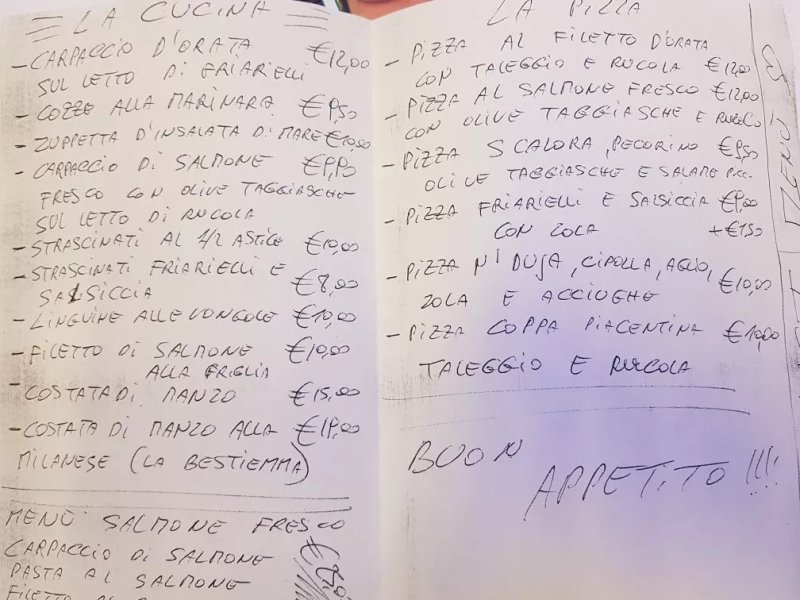 LA CUCINA
- CARPACCIO D'ORATA €12,00
SUL LETTO DI FRIARIELLI
- COZZE ALLA MARINARA €9,50
- ZUPPETTA D'INSALATA DI MARE €10,00
- CARPACCIO DI SALMONE €9,90
FRESCO CON OLIVE TAGGIASCHE
SUL LETTO DI RUCOLA
- STRASCINATI AL 1/2 ASTICE €10,00
- STRASCINATI FRIARIELLI E
SALSICCIA €8,00
- LINGUINE ALLE VONGOLE €10,00
- FILETTO DI SALMONE €10,00
ALLA GRIGLIA
- COSTATA DI MANZO €15,00
- COSTATA DI MANZO ALLA €19,00
MILANESE (LA BESTIEMMA)
MENÙ SALMONE FRESCO
CARPACCIO DI SALMONE
PASTA AL SALMONE
LA PIZZA
- PIZZA AL FILETTO D'ORATA
CON TALEGGIO E RUCOLA €12,00
- PIZZA AL SALMONE FRESCO €12,00
CON OLIVE TAGGIASCHE E RUCOLA
- PIZZA SCALORA, PECORINO €9,50
OLIVE TAGGIASCHE E SALAME PICC.
- PIZZA FRIARIELLI E SALSICCIA €9,00
CON ZOLA +€1,50
- PIZZA N'DUJA, CIPOLLA, AGLIO, €10,00
ZOLA E ACCIUGHE
- PIZZA COPPA PIACENTINA €10,00
TALEGGIO E RUCOLA
BUON
APPETITO !!!!